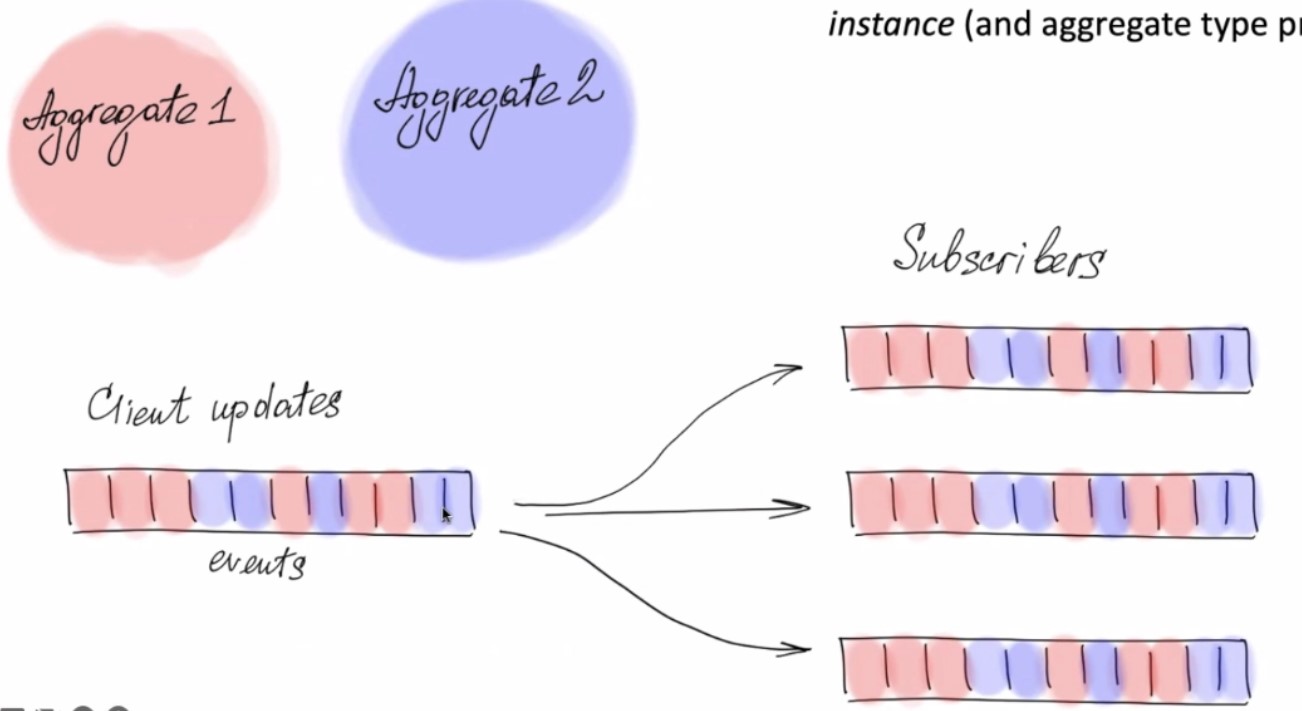 instance (and aggregate type pr
Aggregate 1
Aggregate 2
Subscribers
Client updates
events